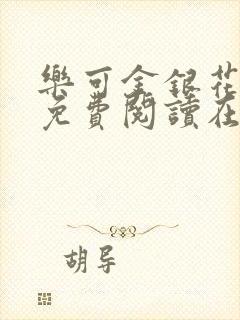 樂可金銀花
免費閱讀在
胡导